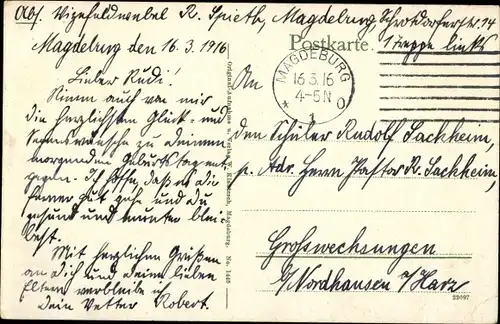 Abs. Vizefeldwebel R. Spieth, Magdeburg, Schrotdorferstr. 14
1 Treppe links
Postkarte.
Magdeburg den 16.3.1916
MAGDEBURG
16.3.16
4-5N
* 1 o
Lieber Rudi!
Nimm auch von mir
die herzlichsten Glück- und
Segenswünsche zu Deinem
morgenden Geburtstag ent-
gegen. Ich hoffe, dass es Dir
ferner gut gehe und Du
gesund und munter blei-
best.
Mit herzlichen Grüßen
an Dich und Deine lieben
Eltern verbleibe ich
Dein Vetter Robert.
Original-Aufnahme u. Verlag Magdeburg. No.
An
den Schüler Rudolf Sackheim,
p. Adr. Herrn Pastor R. Sackheim,
Großwechsungen
b/Nordhausen a/Harz
22097